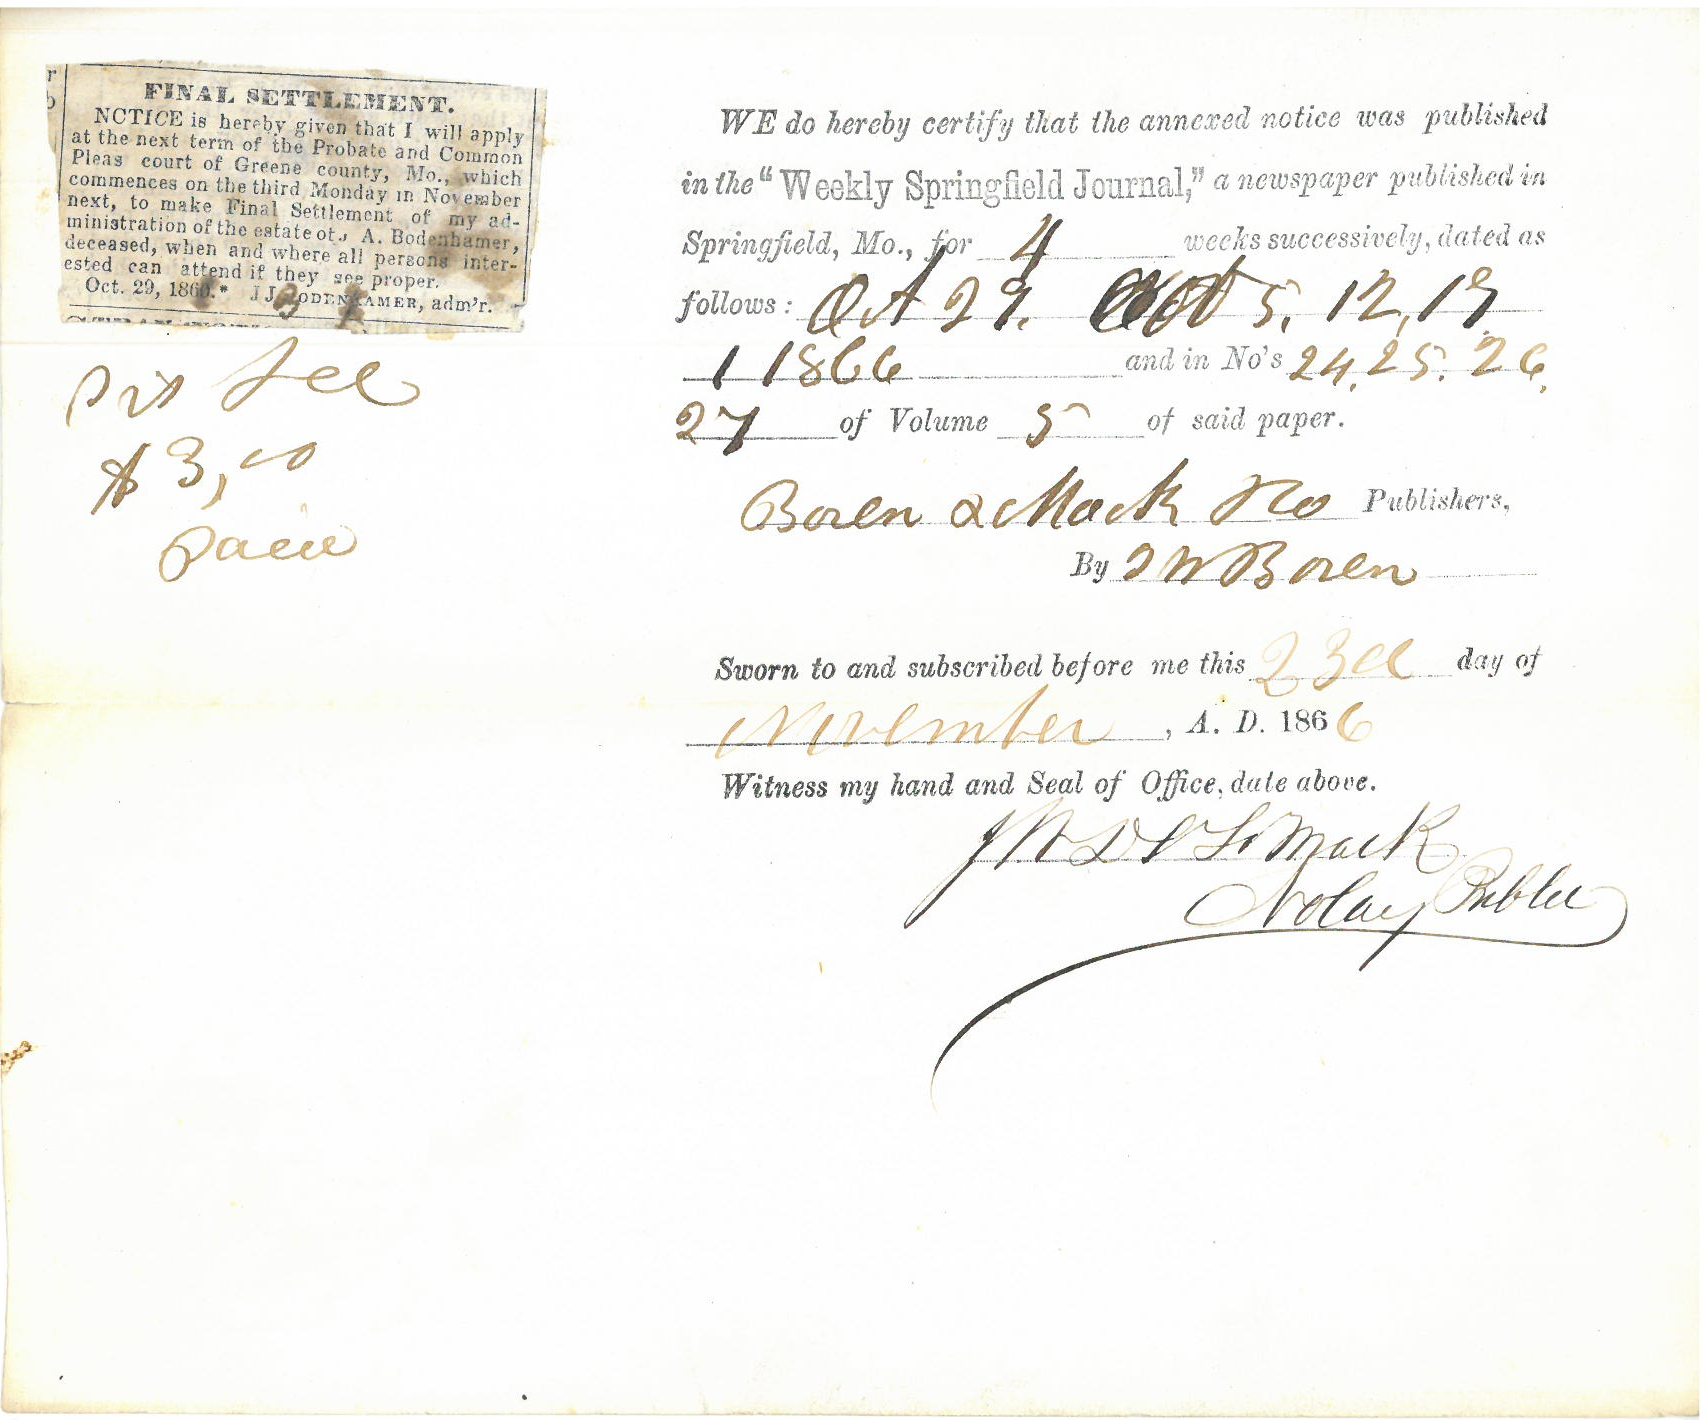 FINAL SETTLEMENT.
NOTICE is hereby given that I will apply
at the next term of the Probate and Common
Pleas court of Greene county, Mo., which
commences on the third Monday in November
next, to make Final Settlement of my ad-
ministration of the estate ot., A. Bodenhamer,
deceased, when and where all persons inter-
ested can attend if they see proper.
Oct. 29, 1866.* J J BODENHAMER, adm'r.
Fee
$3,00
Paid
WE do hereby certify that the annexed notice was published
in the "Weekly Springfield Journal," a newspaper published in
Springfield, Mo., for 4 weeks successively, dated as
follows: Oct 29. 5, 12, 19
1866 and in No's 24, 25. 26,
27 of Volume 5 of said paper.
Boren & Mack Publishers,
By Boren
Sworn to and subscribed before me this 23d day of
November, A. D. 1866
Witness my hand and Seal of Office, date above.
Mack
Notary Public